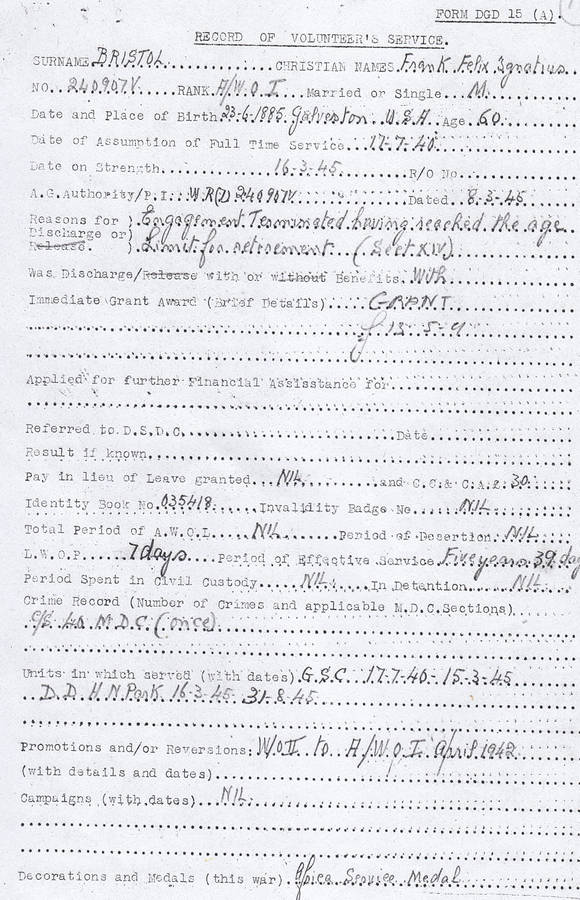 FORM DGD 15 (A).
RECORD OF VOLUNTEER'S SERVICE.
SURNAME BRISTOL CHRISTIAN NAMES Frank Felix Ignatius
NO. 240907V RANK A/W.O.I Married or Single M.
Date and Place of Birth 23-6-1885 Galveston U.S.A Age 60
Date of Assumption of Full Time Service 17-7-40
Date on Strength 16-3-45 R/O No.
A.G.Authority/P.I. W.R(D) 240907V Dated 8-3-45
Reasons for } Engagement Terminated having reached the age
Discharge or }
Release. } limit for retirement (Sect XIV)
Was Discharge/Release with or without Benefits With
Immediate Grant Award (Brief Details) GRANT
£ 13-5-9
Applied for further Financial Assisstance for
Referred to D.S.D.C. Date
Result if known
Pay in lieu of Leave granted NIL and C.C & C.A.2 30
Identity Book No. 035418 Invalidity Badge No NIL
Total Period of A.W.O.L. NIL Period of Desertion NIL
L.W.O.P. 7 days Period of Effective Service Five years 39 day
Period Spent in Civil Custody NIL In Detention NIL
Crime Record (Number of Crimes and applicable M.D.C.Sections)
C/S 40 M.D.C (once)
Units in which served (with dates) G.S.C 17-7-40 - 15-3-45
D.D.H N Park 16-3-45 31-8-45
Promotions and/or Reversions: W/O II to A/W.O.I April 1942
(with details and dates)
Campaigns (with dates) NIL
Decorations and Medals (this war) Africa Service Medal